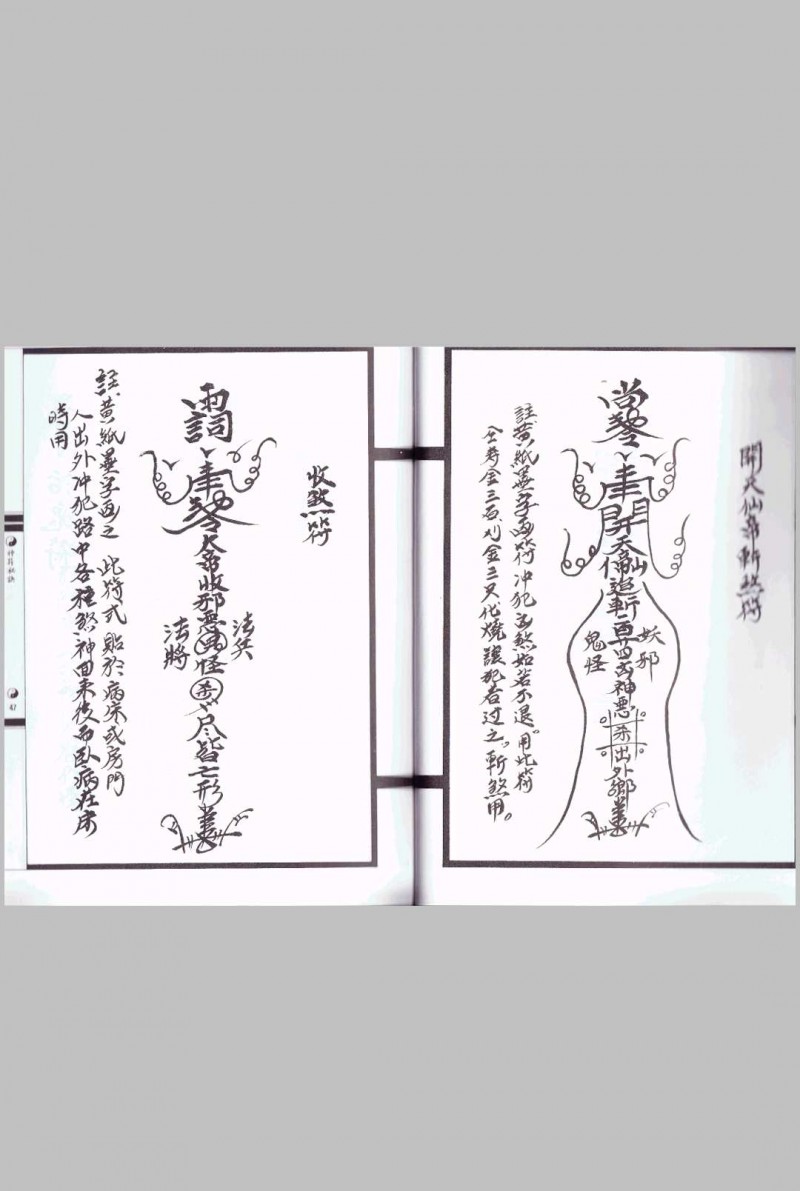 開天仙帝斬煞符
妖邪
鬼怪
天仙帝追斬一百廿四凶神惡
出外鄉
註黃紙墨字画符冲犯凶煞如若不退。用此符
仝寿金三百刈金三又化燒讓犯者过之。斬煞用。
收煞符
法兵
法將
大帝收邪惡鬼怪
尽皆亡形
註黃紙墨字画之 此符式貼於病床或房門
人出外冲犯路中各種煞神回來後而臥病在床
時用
神符秘訣
47